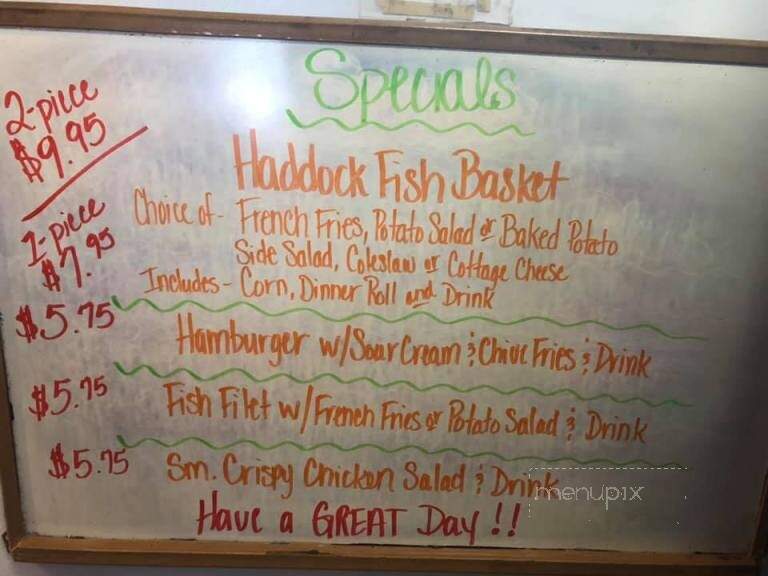 Specials
2-piece
$9.95
Haddock Fish Basket
1-piece
$7.95
Choice of - French Fries, Potato Salad or Baked Potato
Side Salad, Coleslaw or Cottage Cheese
Includes - Corn, Dinner Roll and Drink
$5.75
Hamburger w/Sour Cream & Chive Fries & Drink
$5.75
Fish Filet w/French Fries or Potato Salad & Drink
$5.75
Sm. Crispy Chicken Salad & Drink
menupix
Have a GREAT Day !!